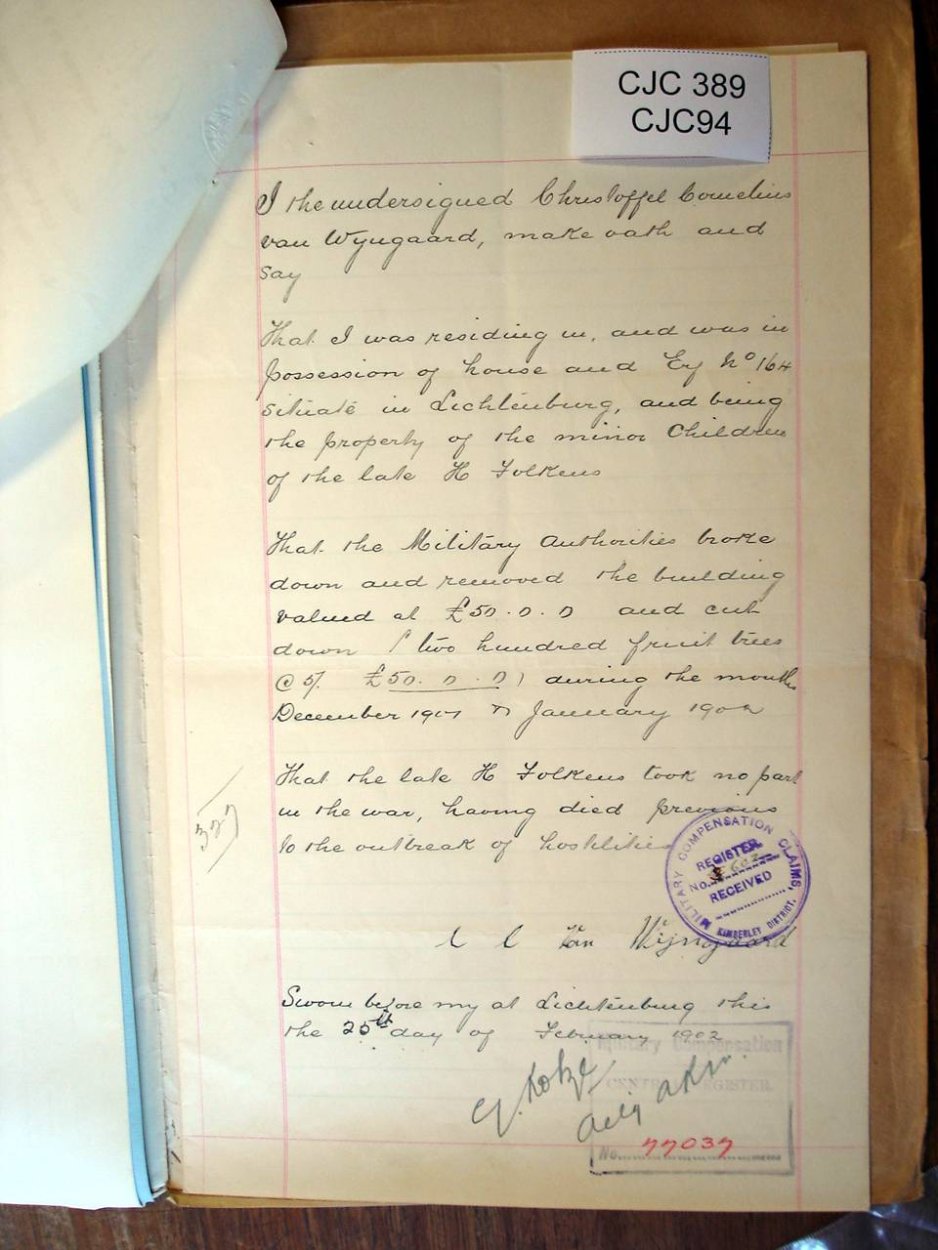 CJC 389
CJC94
I the undersigned Christoffel Cornelius
van Wyngaard, make oath and
say
That I was residing in, and was in
possession of house and Erf No 164
situate in Lichtenburg, and being
the property of the minor Children
of the late H Folkens
That the Military Authorities broke
down and removed the building
valued at £50.0.0 and cut
down (two hundred fruit trees
@ 5/ £50.0.0) during the months
December 1901 January 1902
That the late H Folkens took no part
in the war, having died previous
to the outbreak of hostilities
MILITARY COMPENSATION CLAIMS,
REGISTER
No.
RECEIVED
KIMBERLEY DISTRICT.
C C Van Wijngaard
Sworn before my at Lichtenburg this
the 25th day of February 1902
Military Compensation
CENTRAL REGISTER.
Kotze
No. 77037